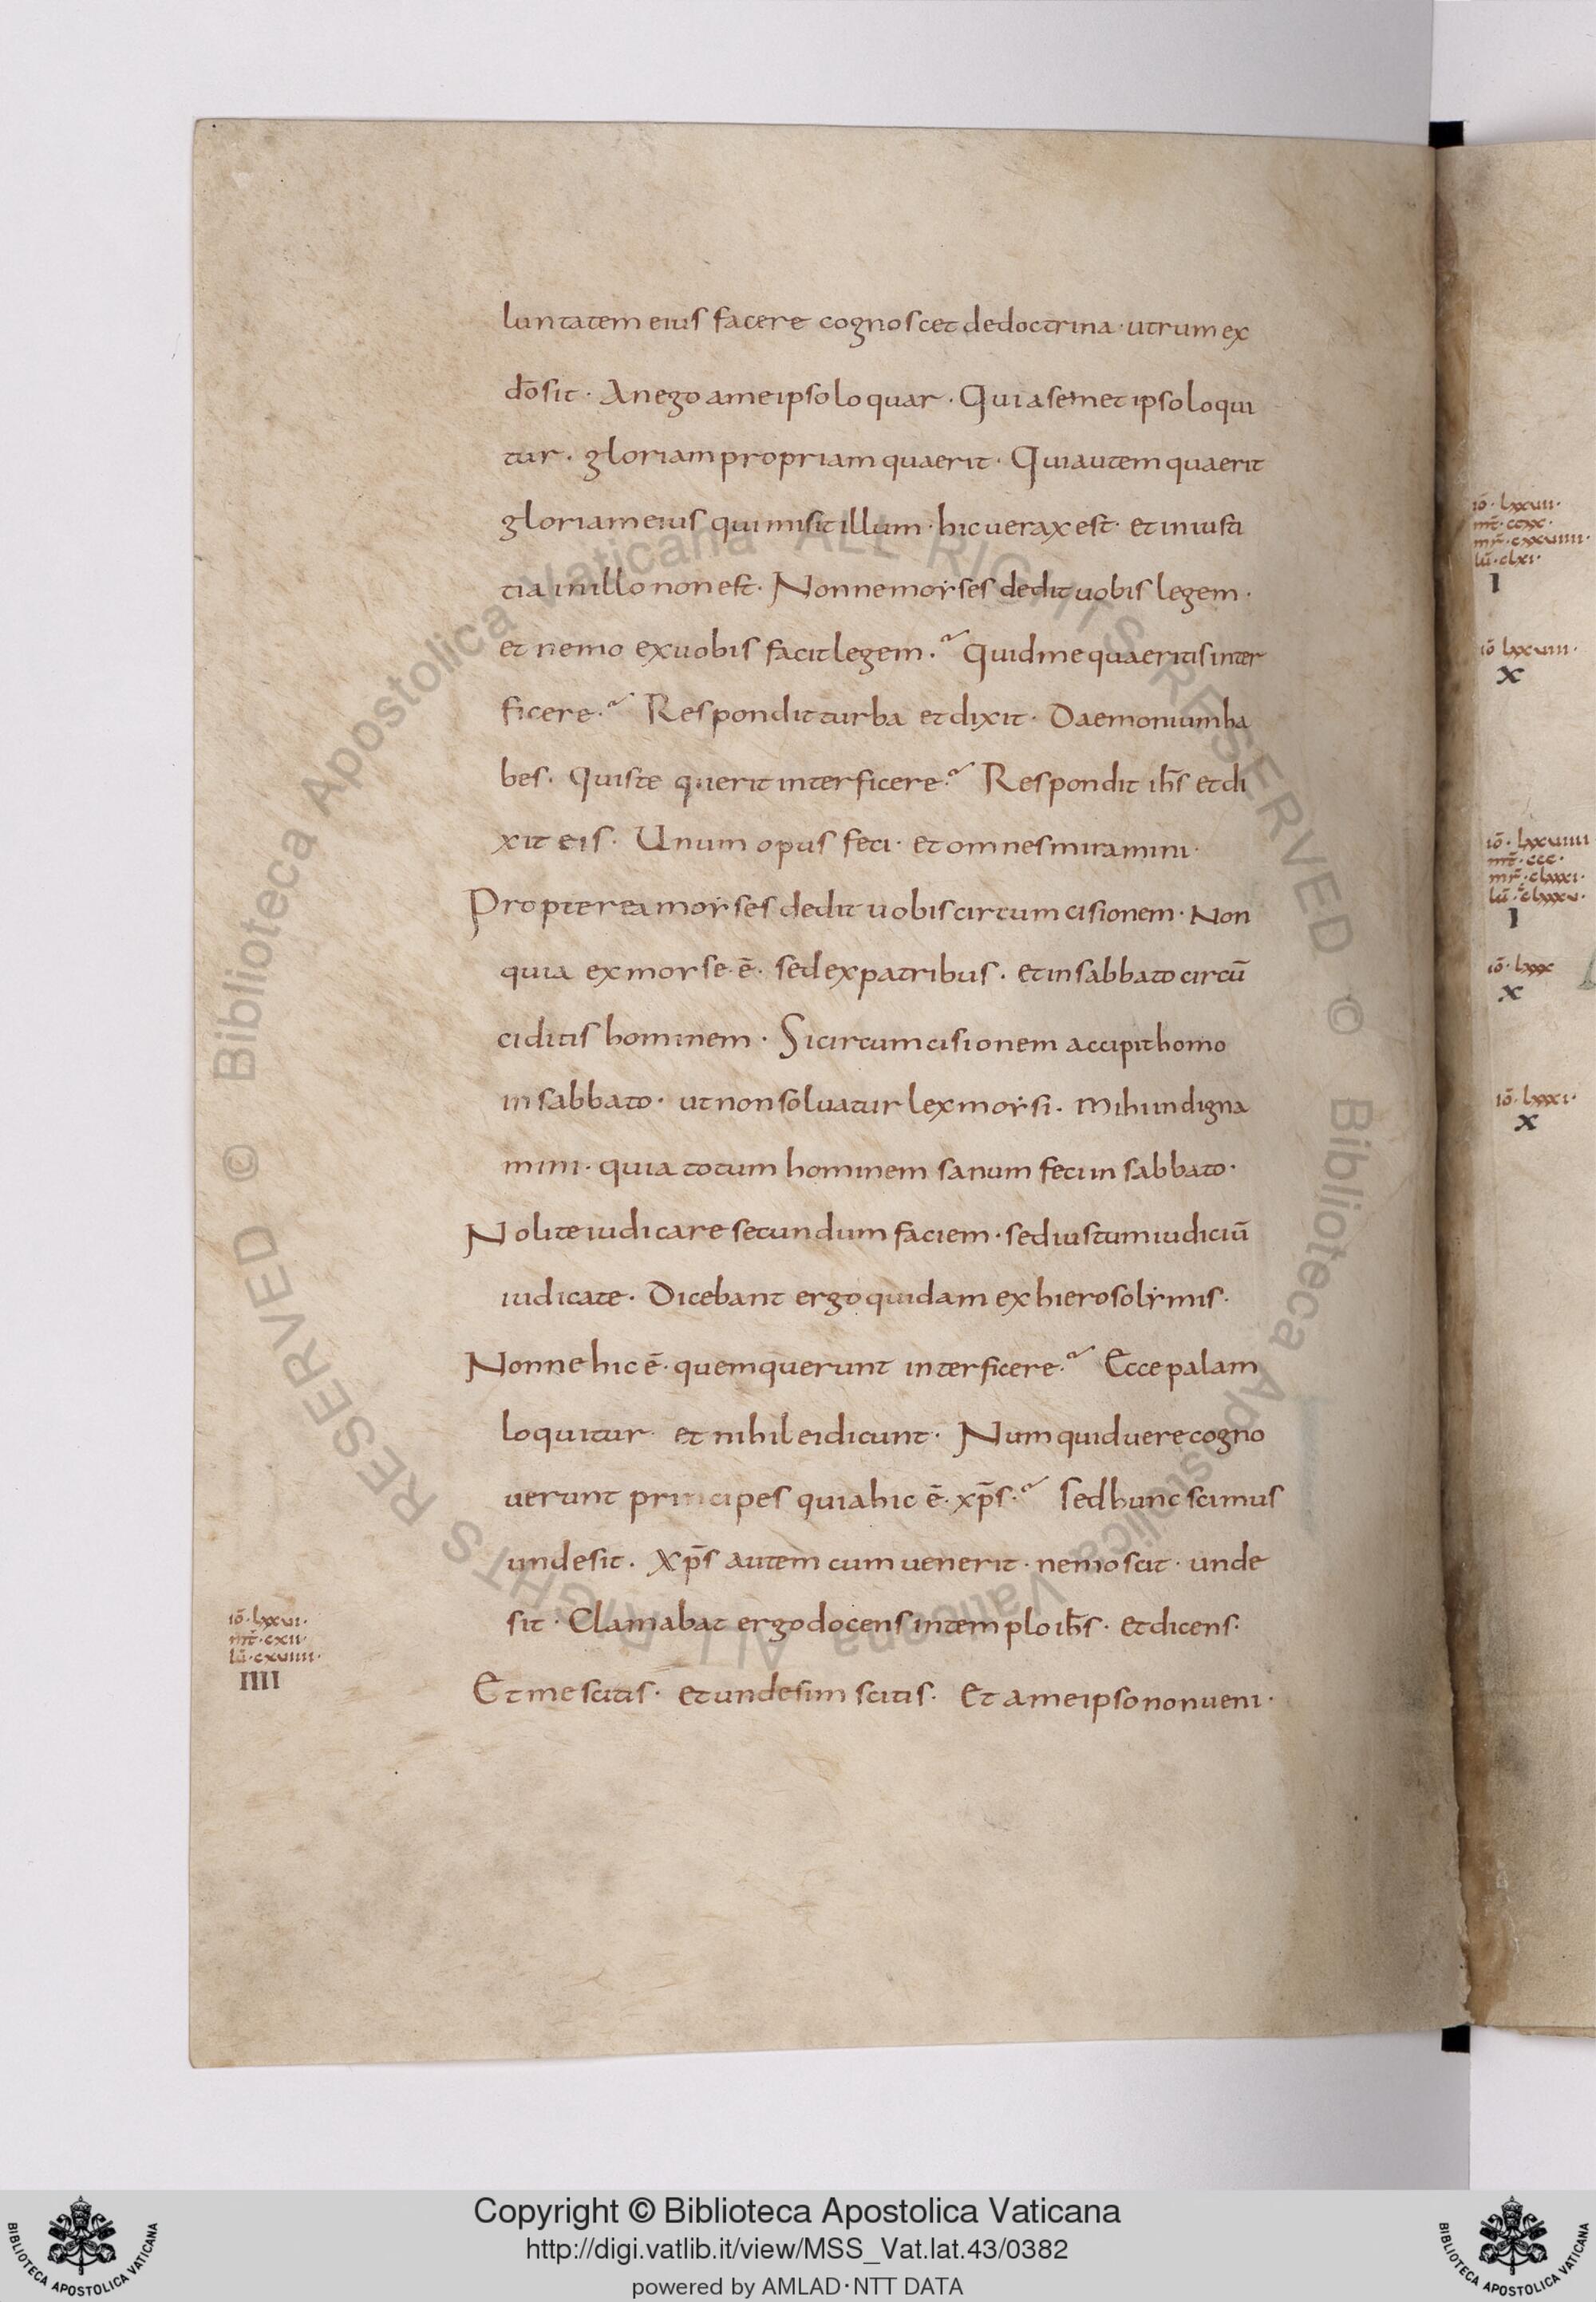 luntatem eius facere cognoscet dedoctrina · utrum ex
dō sit · An ego ameipso loquar · Qui asemet ipso loqui
tur . gloriam propriam quaerit · Qui autem quaerit
gloriam eius qui misit illum · hic uerax est · et iniusti
tia in illo non est · Nonne moẏses dedit uobis legem ·
et nemo ex uobis facit legem . Quid me quaeritis inter
ficere . Respondit turba et dixit · Daemonium ha
bes . Quis te querit interficere . Respondit ih̄s et di
xit eis · Unum opus feci · et omnes miramini ·
Propterea moẏses dedit uobis circumcisionem · Non
quia ex moẏse · ē · sed ex patribus . et in sabbato circū
ciditis hominem · Si circumcisionem accipit homo
in sabbato · ut non soluatur lex moẏsi . Mihi indigna
mini · quia totum hominem sanum feci in sabbato ·
Nolite iudicare secundum faciem · sed iustum iudiciū
iudicate · Dicebant ergo quidam ex hierosolẏmis ·
Nonne hic ē · quem querunt interficere . Ecce palam
loquitur · et nihil ei dicunt · Numquid uere cogno
uerunt principes quia hic ē · xp̄s . Sed hunc scimus
unde sit . Xp̄s autem cum uenerit · nemo scit · unde
sit · Clamabat ergo docens in templo ih̄s · et dicens ·
Et me scitis · et unde sim scitis · Et ameipso non ueni ·
iō · lxxvi ·
mt̄ · cxii ·
lū · cxviiii ·
IIII
iō · lxxvii ·
mt̄ · ccxx ·
mr̄ · cxxviiii ·
lū · clxi ·
I
iō lxxviii ·
X
iō · lxxviiii
mt̄ · ccc ·
mr̄ · clxxxi ·
lū · clxxxv ·
I
iō · lxxx
X
iō · lxxxi ·
X
© Biblioteca Apostolica Vaticana ALL RIGHTS RESERVED
© Biblioteca Apostolica Vaticana ALL RIGHTS RESERVED
Copyright © Biblioteca Apostolica Vaticana
http://digi.vatlib.it/view/MSS_Vat.lat.43/0382
powered by AMLAD·NTT DATA
BIBLIOTECA APOSTOLICA VATICANA
BIBLIOTECA APOSTOLICA VATICANA